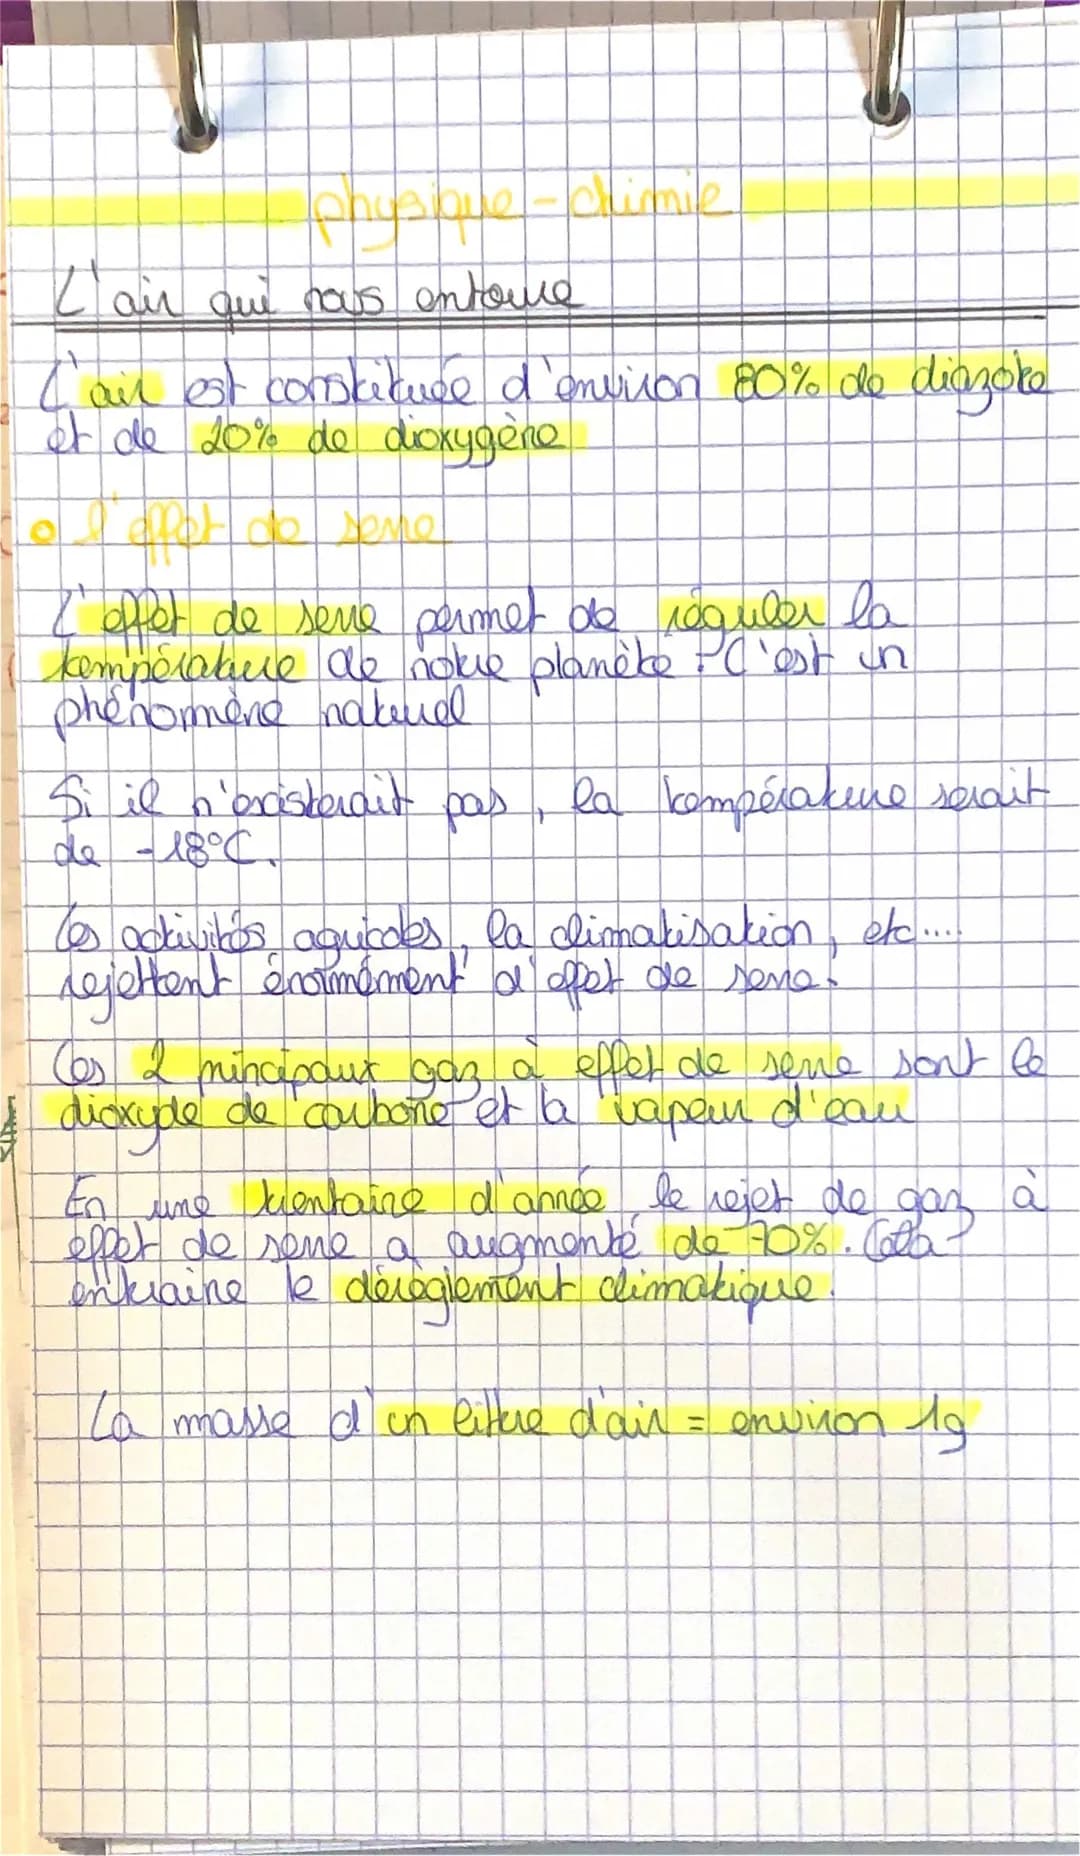 physique-chimie
L'air qui nous entoure
L'air est constituée d'environ 80% de diazote
et de 20% de dioxygène
l'effet de serre
L'effet de serre permet de réguler la
température de notre planète. C'est un
phénomène naturel
Si il n'existerait pas, la température serait
de -18°C.
Les activités agricoles, la climatisation, etc....
rejettent énormément d'effet de serre.
Les 2 principaux gaz à effet de serre sont le
dioxyde de carbone et la vapeur d'eau
En une trentaine d'année, le rejet de gaz à
effet de serre a augmenté de 70%. Cela
entraine le dérèglement climatique.
La masse d'un litre d'air = environ 1g